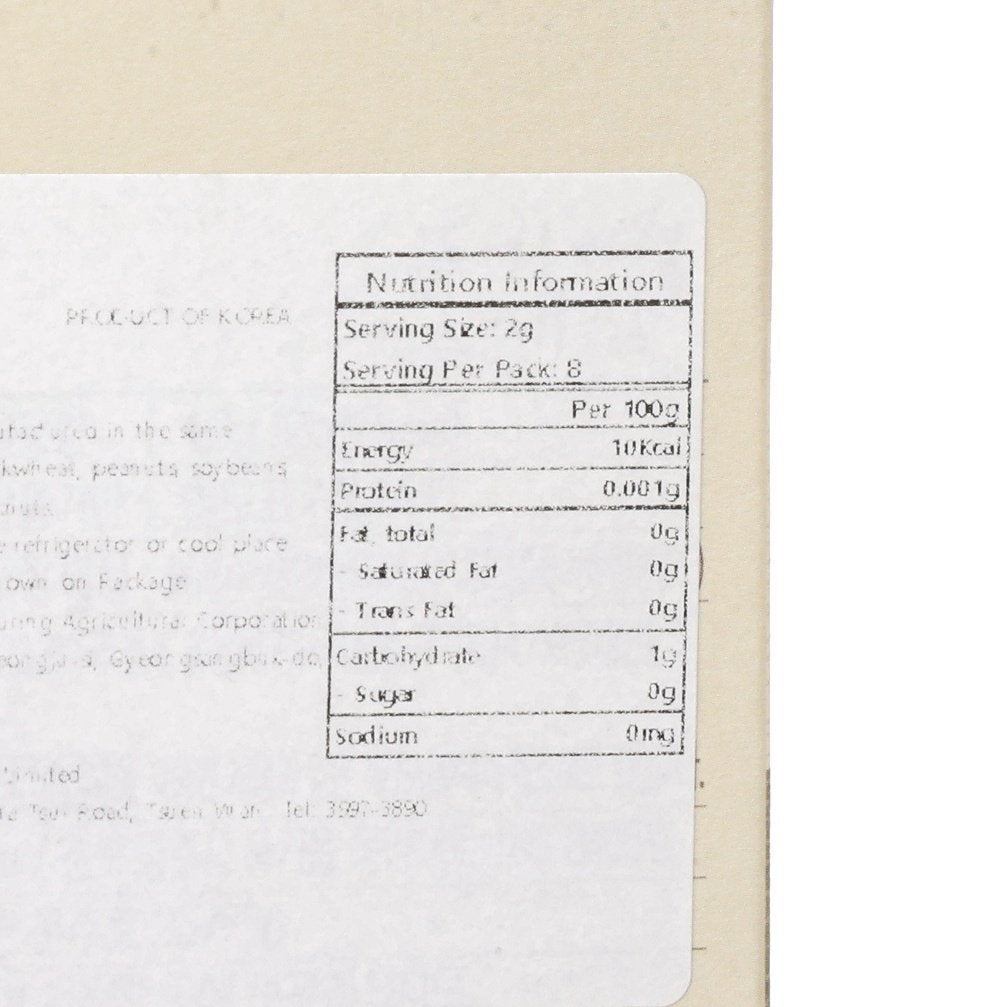 PRODUCT OF KOREA
area in the same
peanuts, soybeans
refrigerator or cool place
own on Package
Agricultural Corporation
Gyeongsangbuk-do,
Limited
Road, Tsuen Wan. Tel: 3997-3890
Nutrition Information
Serving Size: 2g
Serving Per Pack: 8
Per 100g
Energy 10Kcal
Protein 0.001g
Fat, total 0g
- Saturated Fat 0g
- Trans Fat 0g
Carbohydrate 1g
- Sugar 0g
Sodium 0mg